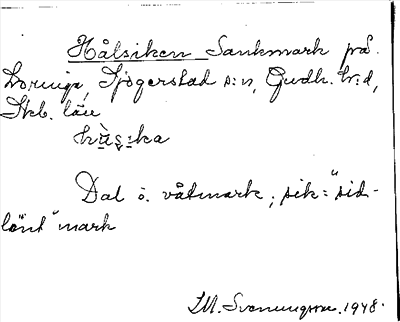 Hålsiken Sankmark på
Loringa, Sjogerstad s:n, Gudh. hr:d,
Skb. län
Dal o. våtmark; sik= "sid-
länt" mark
I.M. Svenungsson. 1948.